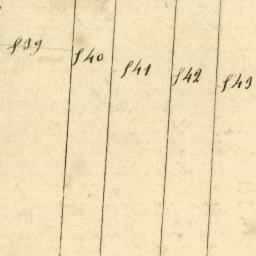 f 39
f 40
f 41
f 42
f 43